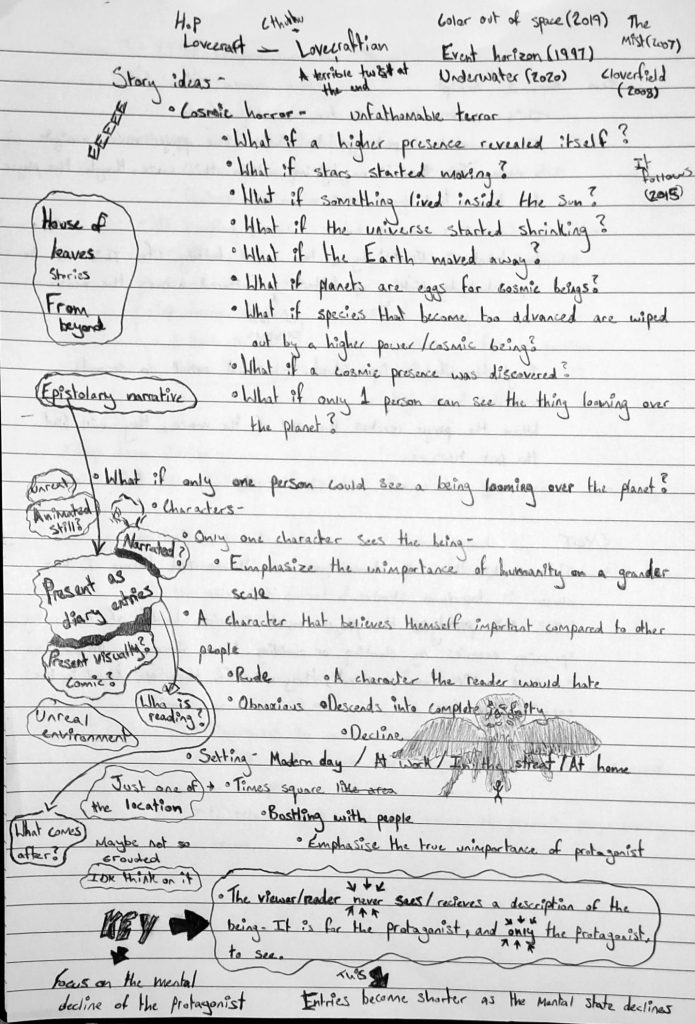 H.P
Lovecraft - Lovecraftian
Cthulhu
A terrible twist at
the end
Color out of space (2019)
The
Mist (2007)
Event horizon (1997)
Underwater (2020)
Cloverfield
(2008)
Story ideas -
EEEEE
• Cosmic horror - unfathomable terror
• What if a higher presence revealed itself?
• What if stars started moving?
It
Follows
(2015)
• What if something lived inside the sun?
• What if the universe started shrinking?
• What if the Earth moved away?
• What if planets are eggs for cosmic beings?
• What if species that become too advanced are wiped
out by a higher power/cosmic being?
• What if a cosmic presence was discovered?
• What if only 1 person can see the thing looming over
the planet?
House of
leaves
stories
From
beyond
Epistolary narrative
• What if only one person could see a being looming over the planet?
Unreal
Animated
still?
• Characters -
Narrated?
• Only one character sees the being -
• Emphasize the unimportance of humanity on a grander
scale
Present as
diary entries
• A character that believes themself important compared to other
people
Present visually?
Comic?
• Rude
• A character the reader would hate
• Obnoxious
• Descends into complete insanity
• Decline
Who is
reading?
Unreal
environment
• Setting - Modern day / At work / In the street / At home
Just one of
the location
• Times square like area
• Bustling with people
• Emphasise the true unimportance of protagonist
What comes
after?
Maybe not so
crouded
IDK think on it
KEY
• The viewer/reader never sees/recieves a description of the
being - It is for the protagonist, and only the protagonist,
to see.
Focus on the mental
decline of the protagonist
This
Entries become shorter as the mental state declines